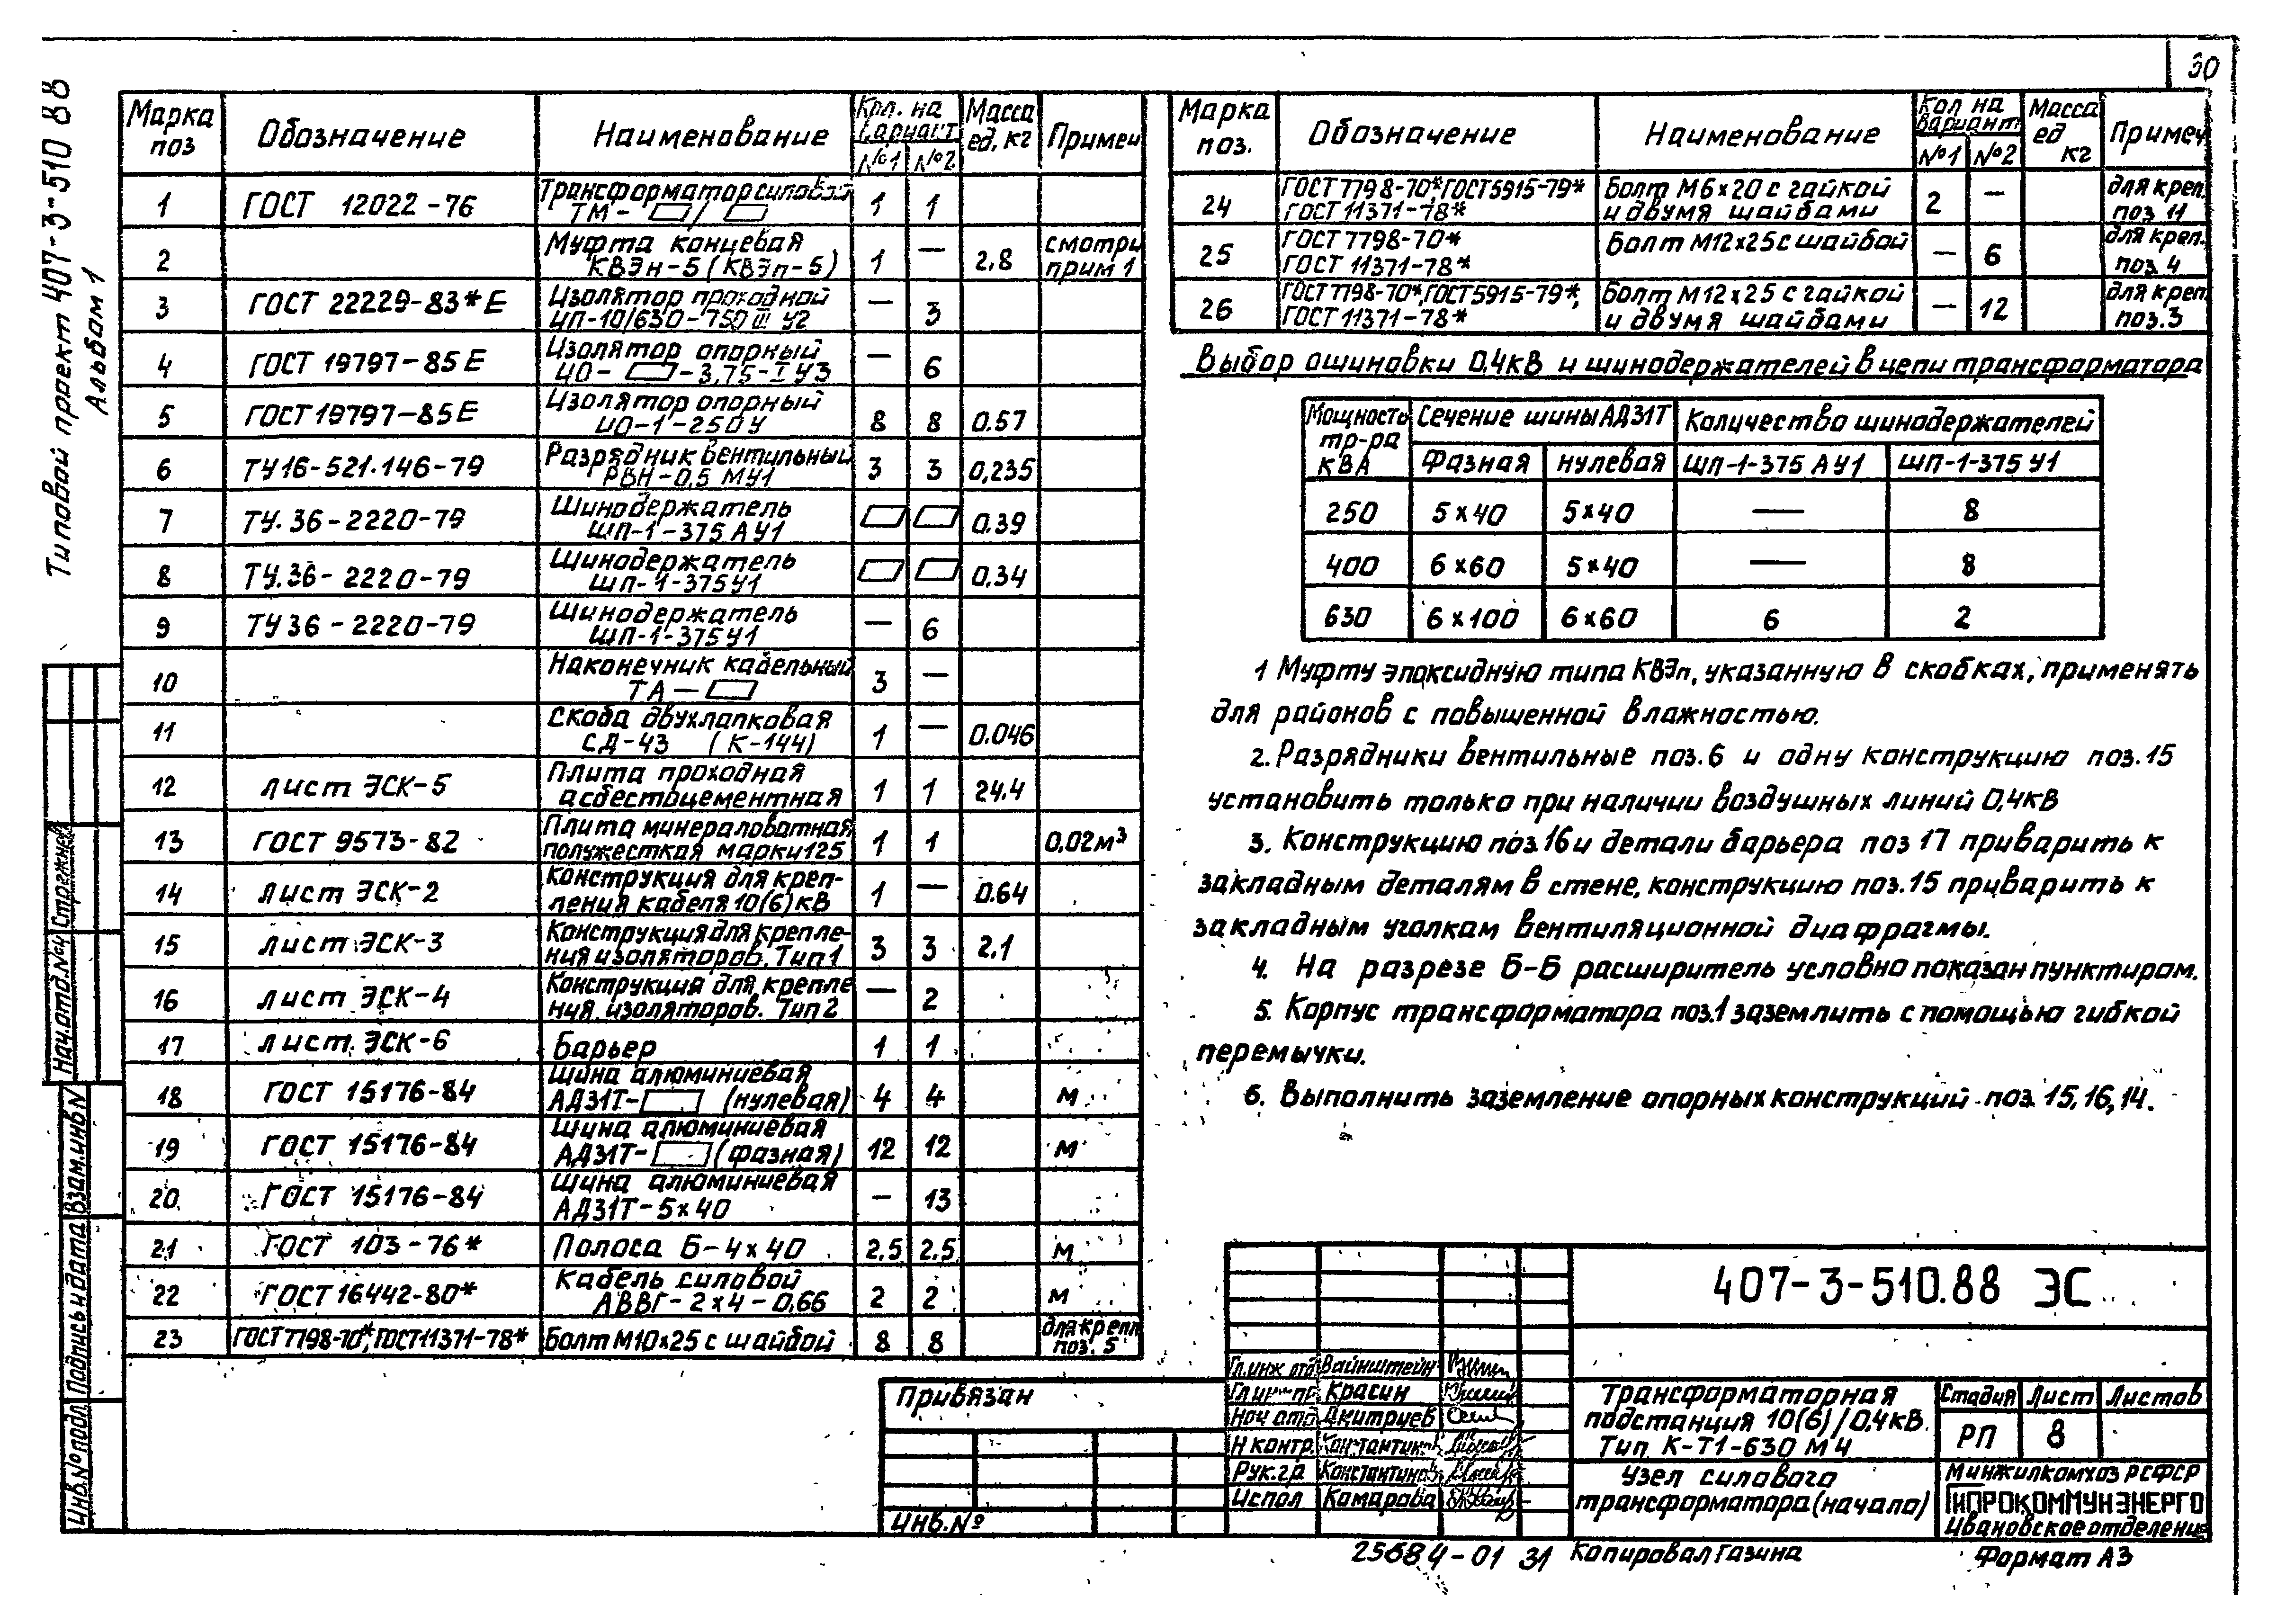 30
Типовой проект 407-3-510 88
Альбом 1
Марка поз | Обозначение | Наименование | Кол. на вариант №1 №2 | Масса ед. кг | Примеч
1 | ГОСТ 12022-76 | Трансформатор силовой ТМ- / | 1 | 1
2 | Муфта концевая КВЭн-5 (КВЭп-5) | 1 | — | 2,8 | смотри прим 1
3 | ГОСТ 22229-83*Е | Изолятор проходной ИП-10/630-750 III У2 | — | 3
4 | ГОСТ 19797-85Е | Изолятор опорный ИО- -3,75-I У3 | — | 6
5 | ГОСТ 19797-85Е | Изолятор опорный ИО-1-250У | 8 | 8 | 0.57
6 | ТУ16-521.146-79 | Разрядник вентильный РВН-0,5 МУ1 | 3 | 3 | 0,235
7 | ТУ.36-2220-79 | Шинодержатель ШП-1-375 АУ1 | 0.39
8 | ТУ.36-2220-79 | Шинодержатель ШП-1-375У1 | 0.34
9 | ТУ36-2220-79 | Шинодержатель ШП-1-375У1 | — | 6
10 | Наконечник кабельный ТА- | 3 | —
11 | Скоба двухлапковая СД-43 (К-144) | 1 | — | 0.046
12 | лист ЭСК-5 | Плита проходная асбестоцементная | 1 | 1 | 24.4
13 | ГОСТ 9573-82 | Плита минераловатная полужесткая марки125 | 1 | 1 | 0,02м³
14 | лист ЭСК-2 | Конструкция для крепления кабеля 10(6)кВ | 1 | — | 0.64
15 | лист ЭСК-3 | Конструкция для крепления изоляторов. Тип 1 | 3 | 3 | 2.1
16 | лист ЭСК-4 | Конструкция для крепления изоляторов. Тип 2 | — | 2
17 | лист. ЭСК-6 | Барьер | 1 | 1
18 | ГОСТ 15176-84 | Шина алюминиевая АД31Т- (нулевая) | 4 | 4 | м
19 | ГОСТ 15176-84 | Шина алюминиевая АД31Т- (фазная) | 12 | 12 | м
20 | ГОСТ 15176-84 | Шина алюминиевая АД31Т-5×40 | — | 13
21 | ГОСТ 103-76* | Полоса Б-4×40 | 2.5 | 2.5 | м
22 | ГОСТ 16442-80* | Кабель силовой АВВГ-2×4-0,66 | 2 | 2 | м
23 | ГОСТ7798-70*, ГОСТ11371-78* | Болт М10×25 с шайбой | 8 | 8 | для крепл поз. 5
Марка поз. | Обозначение | Наименование | Кол на вариант №1 №2 | Масса ед кг | Примеч
24 | ГОСТ7798-70* ГОСТ5915-79* ГОСТ 11371-78* | Болт М6×20 с гайкой и двумя шайбами | 2 | — | для креп. поз 11
25 | ГОСТ 7798-70* ГОСТ 11371-78* | Болт М12×25 с шайбой | — | 6 | для креп. поз 4
26 | ГОСТ7798-70*, ГОСТ5915-79*, ГОСТ 11371-78* | Болт М12×25 с гайкой и двумя шайбами | — | 12 | для креп поз.3
Выбор ошиновки 0,4кВ и шинодержателей в цепи трансформатора
Мощность тр-ра кВА | Сечение шины АД31Т | Количество шинодержателей
Фазная | нулевая | ШП-1-375 АУ1 | ШП-1-375 У1
250 | 5×40 | 5×40 | — | 8
400 | 6×60 | 5×40 | — | 8
630 | 6×100 | 6×60 | 6 | 2
1 Муфту эпоксидную типа КВЭп, указанную в скобках, применять
для районов с повышенной влажностью.
2. Разрядники вентильные поз.6 и одну конструкцию поз.15
установить только при наличии воздушных линий 0,4кВ
3. Конструкцию поз 16 и детали барьера поз 17 приварить к
закладным деталям в стене, конструкцию поз.15 приварить к
закладным уголкам вентиляционной диафрагмы.
4. На разрезе Б-Б расширитель условно показан пунктиром.
5. Корпус трансформатора поз.1 заземлить с помощью гибкой
перемычки.
6. Выполнить заземление опорных конструкций поз 15,16,14.
Нач.отд.№4 Стрежнев
Взам.инв N
Подпись и дата
Инв.№ подл
Привязан
Инв.№
407-3-510.88 ЭС
Гл.инж отд Вайнштейн
Гл инж пр Красин
Нач отд Дмитриев
Н контр. Константинов
Рук.гр Константинов
Испол Комарова
Трансформаторная
подстанция 10(6)/0,4кВ.
Тип К-Т1-630 М4
Узел силового
трансформатора (начало)
Стадия Лист Листов
РП 8
Минжилкомхоз РСФСР
ГИПРОКОММУНЭНЕРГО
Ивановское отделение
25684-01 31 Копировал Газина Формат А3